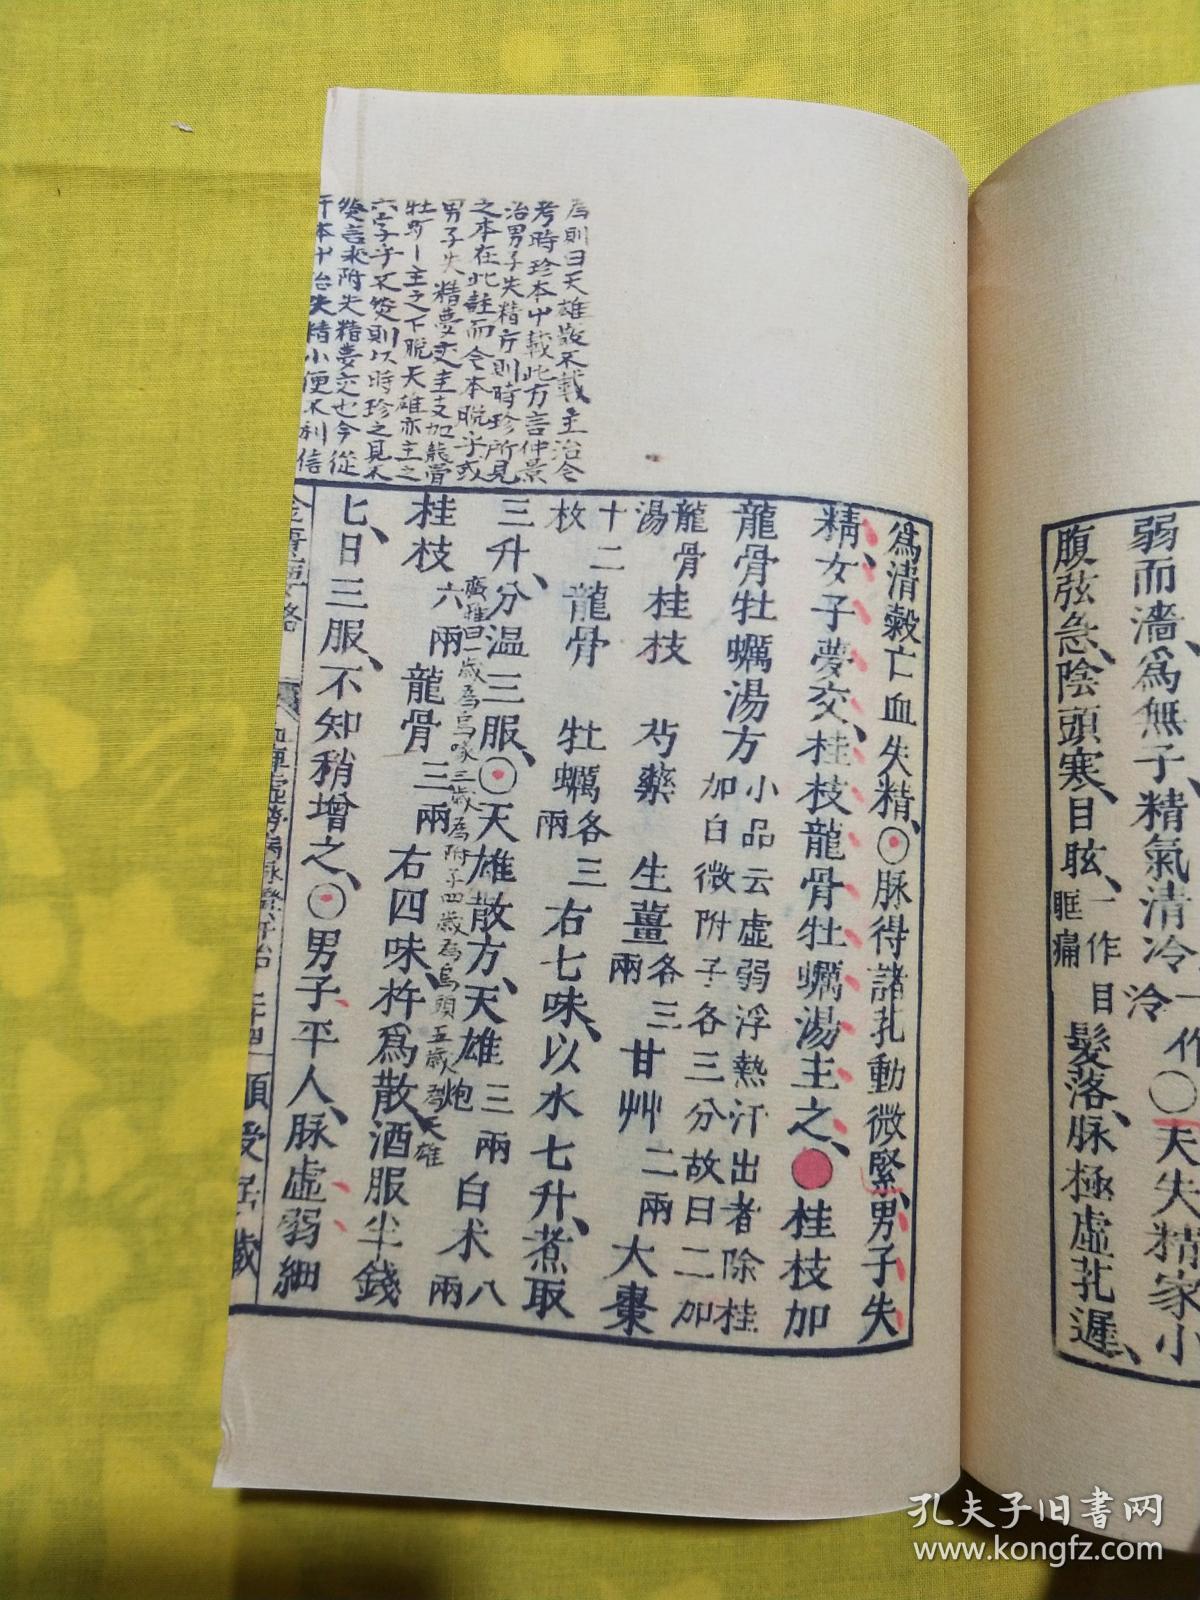 弱而濇、爲無子、精氣清冷一作冷〇夫失精家小
腹弦急、陰頭寒、目眩、一作目眶痛髮落、脉極虛芤遲、
爲清穀亡血失精、〇脉得諸芤動微緊、男子失
精、女子夢交、桂枝龍骨牡蠣湯主之、●桂枝加
龍骨牡蠣湯方小品云虛弱浮熱汗出者除桂加白微附子各三分故曰二加
龍骨湯 桂枝 芍藥 生薑各三兩 甘艸二兩 大棗
十二枚 龍骨 牡蠣各三兩 右七味、以水七升、煮取
三升、分温三服、〇天雄散方、天雄三兩炮 白朮八兩
桂枝六兩 龍骨三兩 右四味、杵爲散、酒服半錢
匕、日三服、不知稍增之、〇男子平人、脉虛弱細
廣雅曰一歲爲烏喙三歲爲附子四歲爲烏頭五歲爲天雄
爲則曰天雄散不載主治今
考時珍本艸載此方言仲景
治男子失精方則時珍所見
之本在此註而今本脫乎或
男子失精夢交圭支加龍骨
牡蠣主之下脫天雄亦主之
六字乎不然則以時珍之見不
然言來附失精夢交也今從
于本艸治失精小便不利信
二十四
孔夫子旧书网
www.kongfz.com